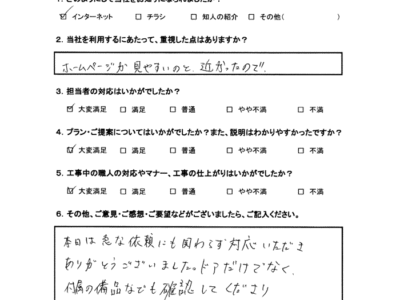 1. どのようにして当社をお知りになられましたか？
☑ インターネット □ チラシ □ 知人の紹介 □ その他( )
2. 当社を利用するにあたって、重視した点はありますか？
ホームページが見やすいのと、近かったので。
3. 担当者の対応はいかがでしたか？
☑ 大変満足 □ 満足 □ 普通 □ やや不満 □ 不満
4. プラン・ご提案についてはいかがでしたか？また、説明はわかりやすかったですか？
☑ 大変満足 □ 満足 □ 普通 □ やや不満 □ 不満
5. 工事中の職人の対応やマナー、工事の仕上がりはいかがでしたか？
☑ 大変満足 □ 満足 □ 普通 □ やや不満 □ 不満
6. その他、ご意見・ご感想・ご要望などがございましたら、ご記入ください。
本日は急な依頼にも関わらず対応いただき
ありがとうございました。ドアだけでなく、
付属の備品なども確認してくださり